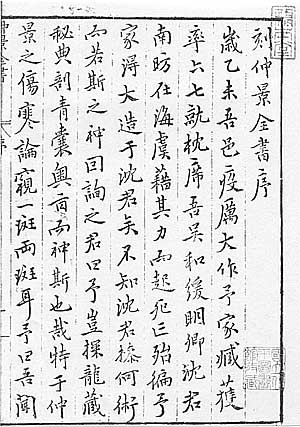 刻仲景全書序
歲乙未吾邑疫厲大作予家臧獲
率六七就枕席吾吳和緩明卿沈君
南昉在海虞藉其力而起死亡殆徧予
家淂大造于沈君矣不知沈君操何術
而若斯之神因詢之君曰予豈探龍藏
秘典剖青囊奧旨而神斯也哉特于仲
景之傷寒論窺一斑兩斑耳予曰吾聞